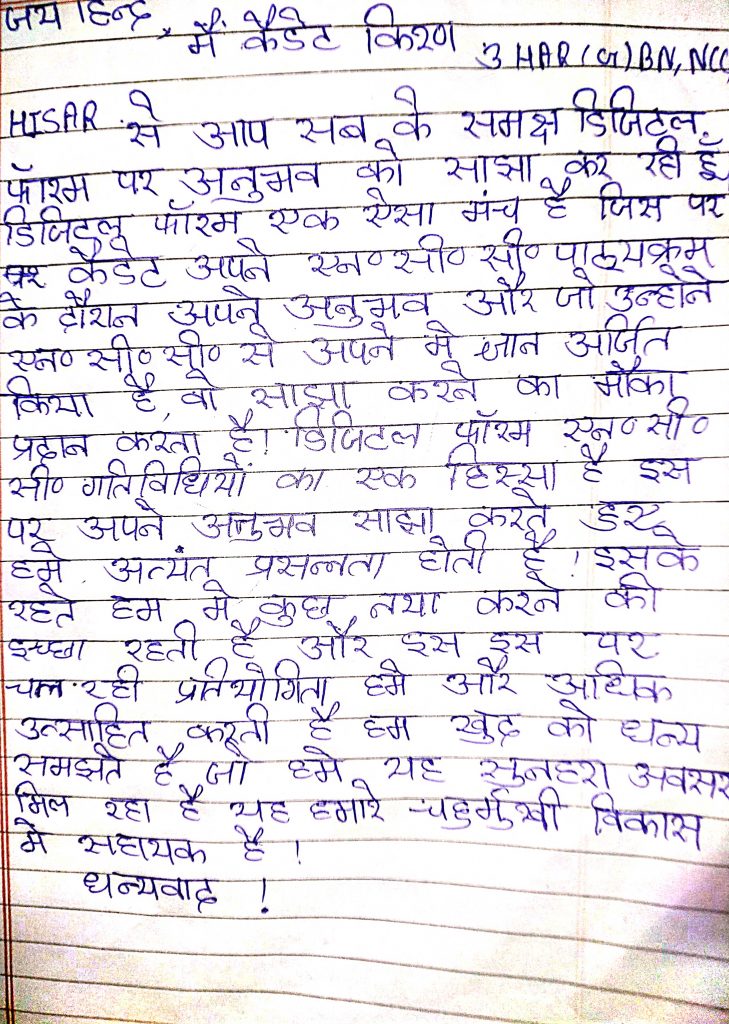 जय हिन्द,
मैं कैडेट किरण 3 HAR (G) BN, NCC,
HISAR से आप सब के समक्ष डिजिटल
फॉरम पर अनुभव को साझा कर रही हूँ
डिजिटल फॉरम एक ऐसा मंच है जिस पर
पर कैडेट अपने एन॰सी॰सी॰ पाठ्यक्रम
के दौरान अपने अनुभव और जो उन्होने
एन॰ सी॰ सी॰ से अपने मे ज्ञान अर्जित
किया है, वो साझा करने का मौका
प्रदान करता है। डिजिटल फॉरम एन॰सी॰
सी॰ गतिविधियों का एक हिस्सा है इस
पर अपने अनुभव साझा करते हुए
हमे अत्यंत प्रसन्नता होती है! इसके
रहते हम मे कुछ नया करने की
इच्छा रहती है और इस इस पर
चल रही प्रतियोगिता हमे और अधिक
उत्साहित करती है हम खुद को धन्य
समझते है जो हमे यह सुनहरा अवसर
मिल रहा है यह हमारे चहुर्मुखी विकास
मे सहायक है!
धन्यवाद !